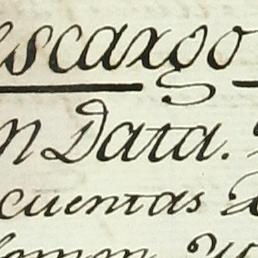 escargo
n Data.
cuentas